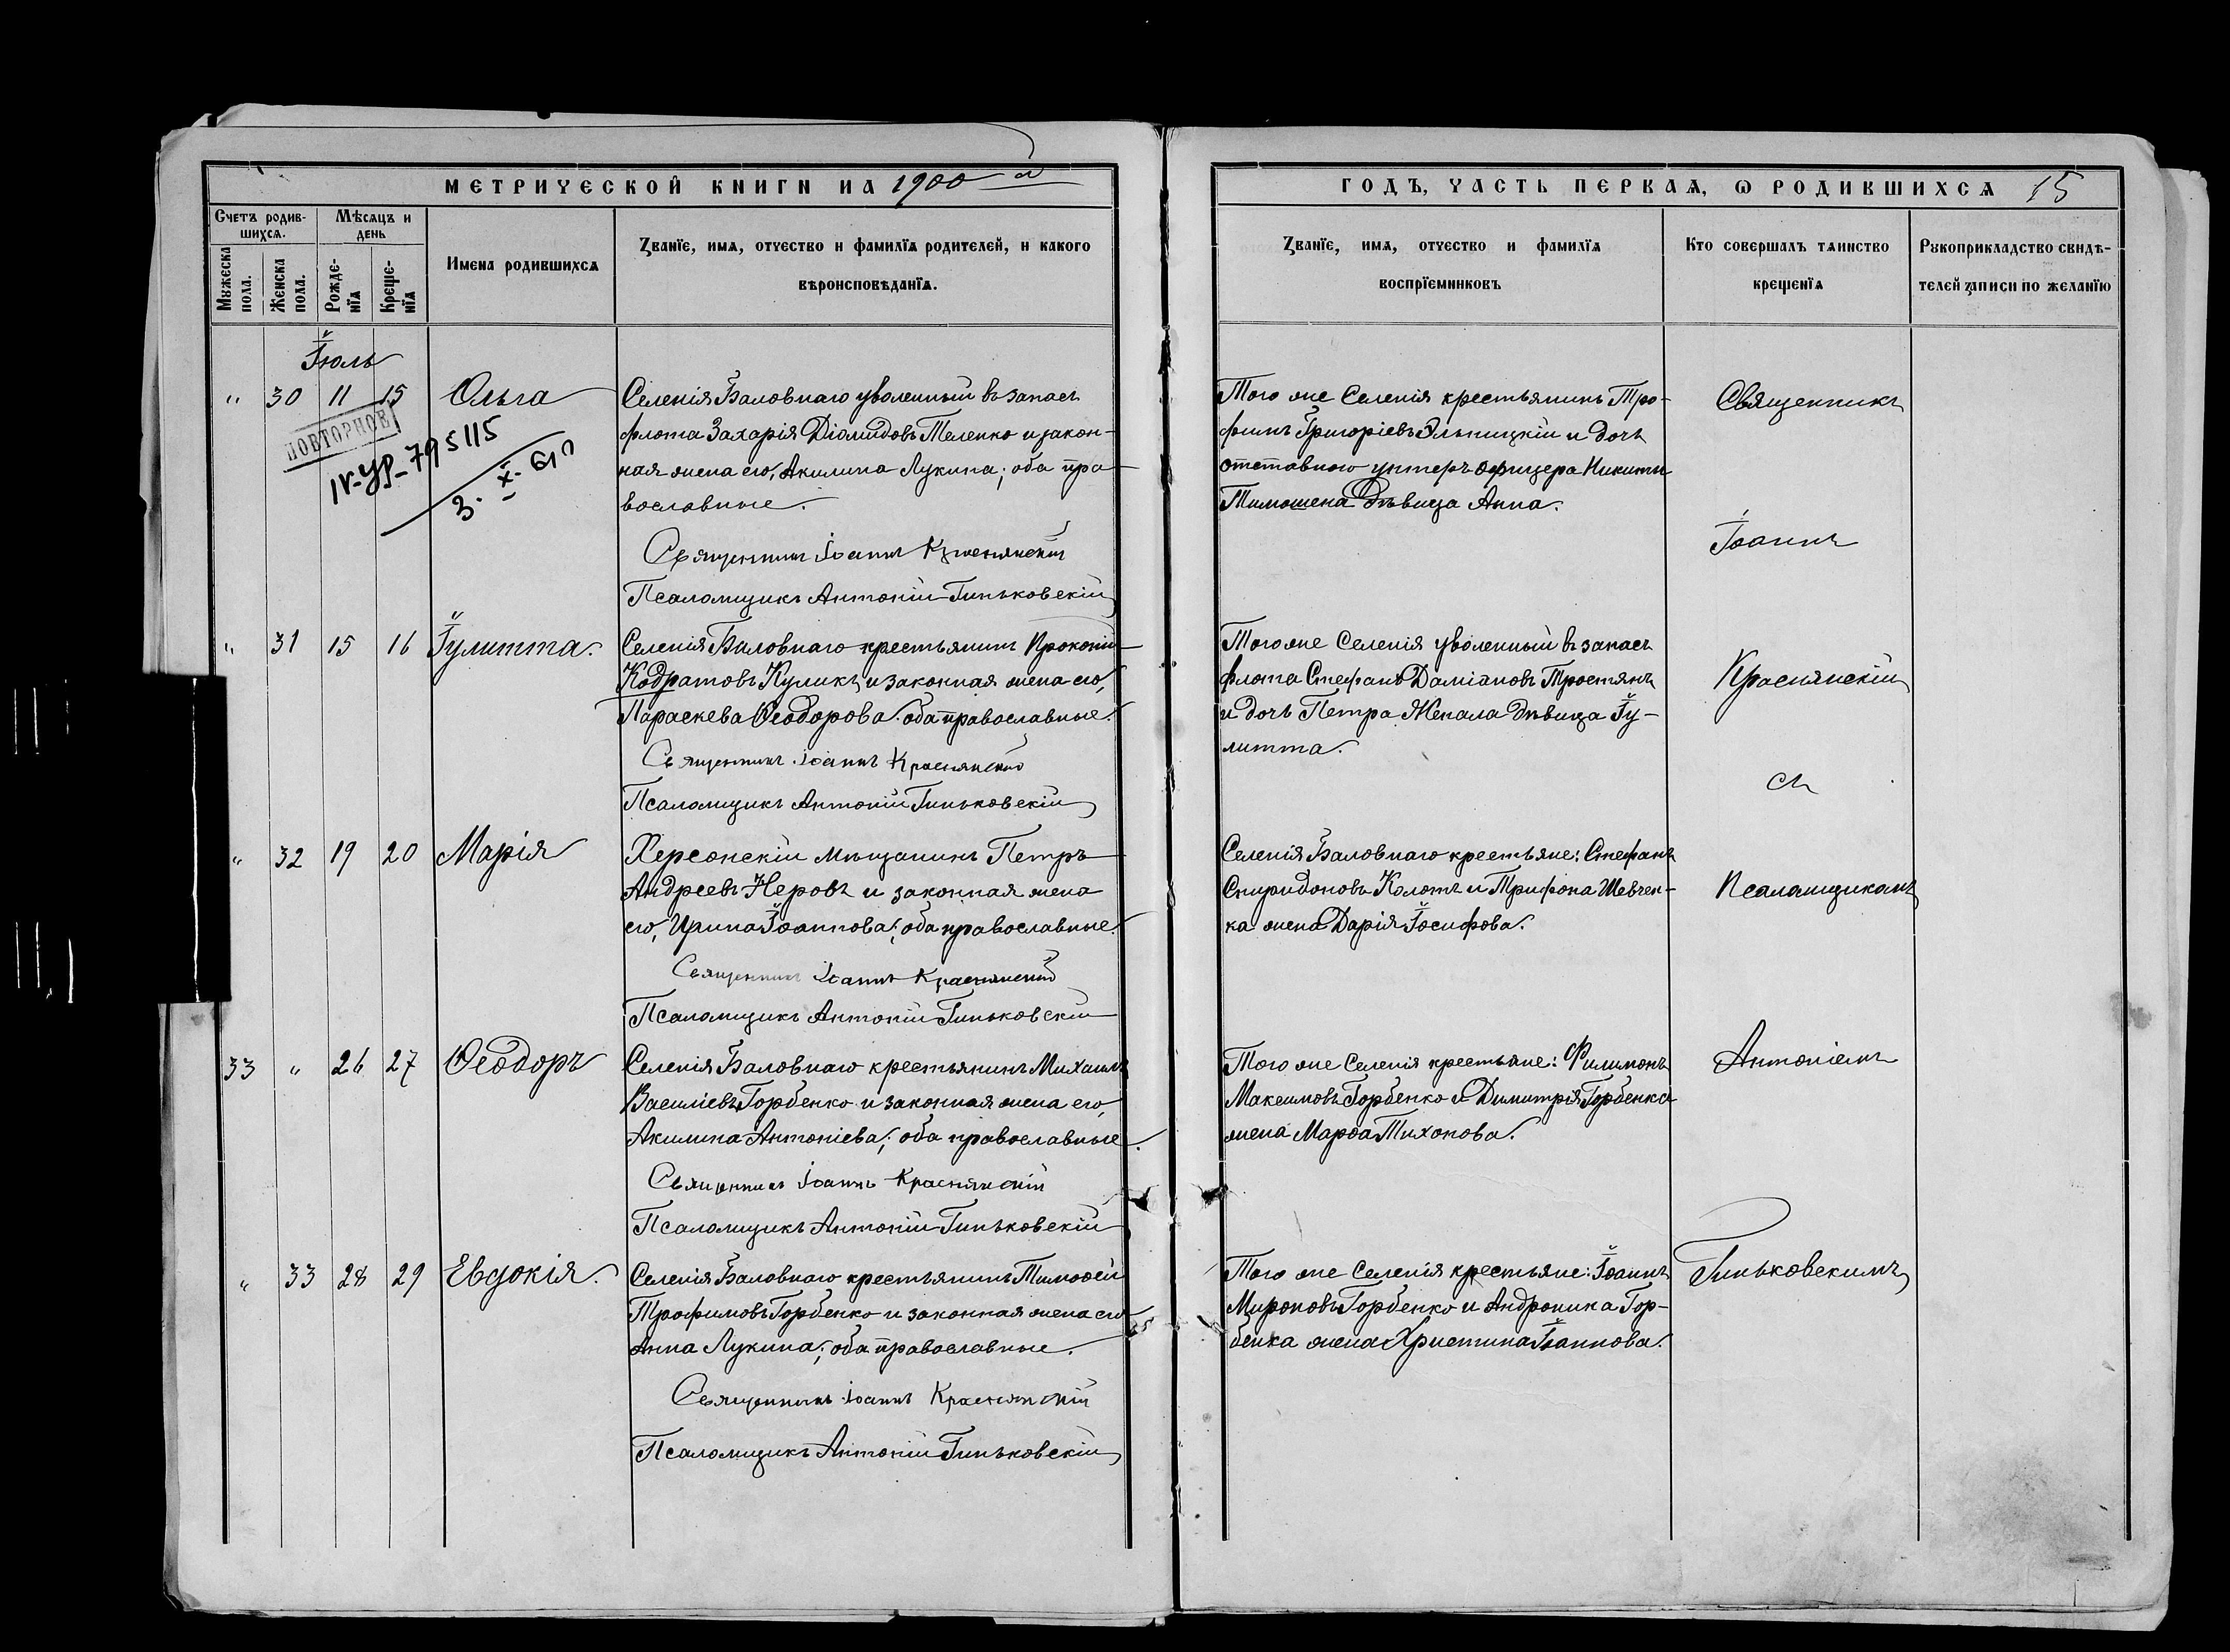 МЕТРИЧЕСКОЙ КНИГИ НА 1900 й
Счетъ родив-
шихся.
Мѣсяцъ и
день
Мужеска
пола.
Женска
пола.
Рожде-
нїя
Креще-
нїя
Имена родившихся
Званїе, имя, отчество и фамилїя родителей, и какого
вѣроисповѣданїя.
ГОДЪ, ЧАСТЬ ПЕРВАЯ, Ѡ РОДИВШИХСЯ 15
Званїе, имя, отчество и фамилїя
воспрїемниковъ
Кто совершалъ таинство
крещенїя
Рукоприкладство свидѣ-
телей записи по желанїю
Іюль
" 30 11 15 Ольга
ПОВТОРНОЕ
IV-УР-795115
3. X-
Селенія Баловнаго уволенный въ запасъ
флота Захарія Діомидовъ Теленко и закон-
ная жена его, Акилина Лукина; оба пра
вославные.
Священникъ Іоаннъ Краснянскій
Псаломщикъ Антоній Гиньковскій
Того же Селенія крестьянинъ Тро-
фимъ Григоріевъ Ольницкій и дочь
отставного унтеръ офицера Никиты
Тимошена дѣвица Анна.
Священникъ
Іоаннъ
" 31 15 16 Іулитта.
Селенія Баловнаго крестьянинъ Прокопій
Кодратовъ Куликъ, и законная жена его,
Параскева Ѳеодорова; оба православные.
Священникъ Іоаннъ Краснянскій
Псаломщикъ Антоній Гиньковскій
Того же Селенія уволенный въ запасъ
флота Стефанъ Даміановъ Тростянъ
и дочь Петра Жекала дѣвица Іу-
литта.
Краснянскій
съ
" 32 19 20 Марія
Херсонскій мѣщанинъ Петръ
Андреевъ Неровъ и законная жена
его, Ирина Іоаннова; оба православные.
Священникъ Іоаннъ Краснянскій
Псаломщикъ Антоній Гиньковскій
Селенія Баловнаго крестьяне: Стефанъ
Спиридоновъ Колотъ и Трифона Шевчен-
ка жена Дарія Іосифова.
Псаломщикомъ
33 " 26 27 Ѳеодоръ
Селенія Баловнаго крестьянинъ Михаилъ
Василіевъ Горбенко и законная жена его,
Акилина Антоніева; оба православные.
Священникъ Іоаннъ Краснянскій
Псаломщикъ Антоній Гиньковскій
Того же Селенія крестьяне: Филимонъ
Максимовъ Горбенко и Димитрія Горбенка
жена Марѳа Тихонова.
Антоніемъ
" 33 28 29 Евдокія.
Селенія Баловнаго крестьянинъ Тимоѳей
Трофимовъ Горбенко и законная жена его
Анна Лукина; оба православные.
Священникъ Іоаннъ Краснянскій
Псаломщикъ Антоній Гиньковскій
Того же Селенія крестьяне: Іоаннъ
Мироновъ Горбенко и Андроника Гор-
бенка жена Христина Іоаннова.
Гиньковскимъ